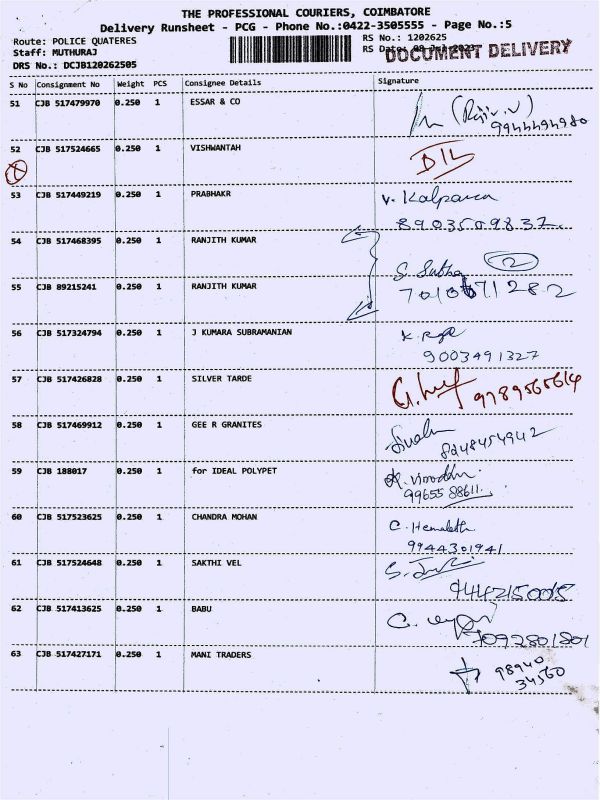 THE PROFESSIONAL COURIERS, COIMBATORE
Delivery Runsheet - PCG - Phone No.:0422-3505555 - Page No.:5
Route: POLICE QUATERES
RS No.: 1202625
Staff: MUTHURAJ
RS Date:
DOCUMENT DELIVERY
DRS No.: DCJB120262505
S No Consignment No Weight PCS Consignee Details Signature
51 CJB 517479970 0.250 1 ESSAR & CO
52 CJB 517524665 0.250 1 VISHWANTAH D/L
53 CJB 517449219 0.250 1 PRABHAKR V. Kalpana
8903509837
54 CJB 517468395 0.250 1 RANJITH KUMAR
S. Subha 2
55 CJB 89215241 0.250 1 RANJITH KUMAR
56 CJB 517324794 0.250 1 J KUMARA SUBRAMANIAN
9003491327
57 CJB 517426828 0.250 1 SILVER TARDE 9789565614
58 CJB 517469912 0.250 1 GEE R GRANITES
8248454942
59 CJB 188017 0.250 1 for IDEAL POLYPET
99655 88611
60 CJB 517523625 0.250 1 CHANDRA MOHAN C. Hemalatha
9944301941
61 CJB 517524648 0.250 1 SAKTHI VEL
9444215005
62 CJB 517413625 0.250 1 BABU
7092801801
63 CJB 517427171 0.250 1 MANI TRADERS 98940
34560